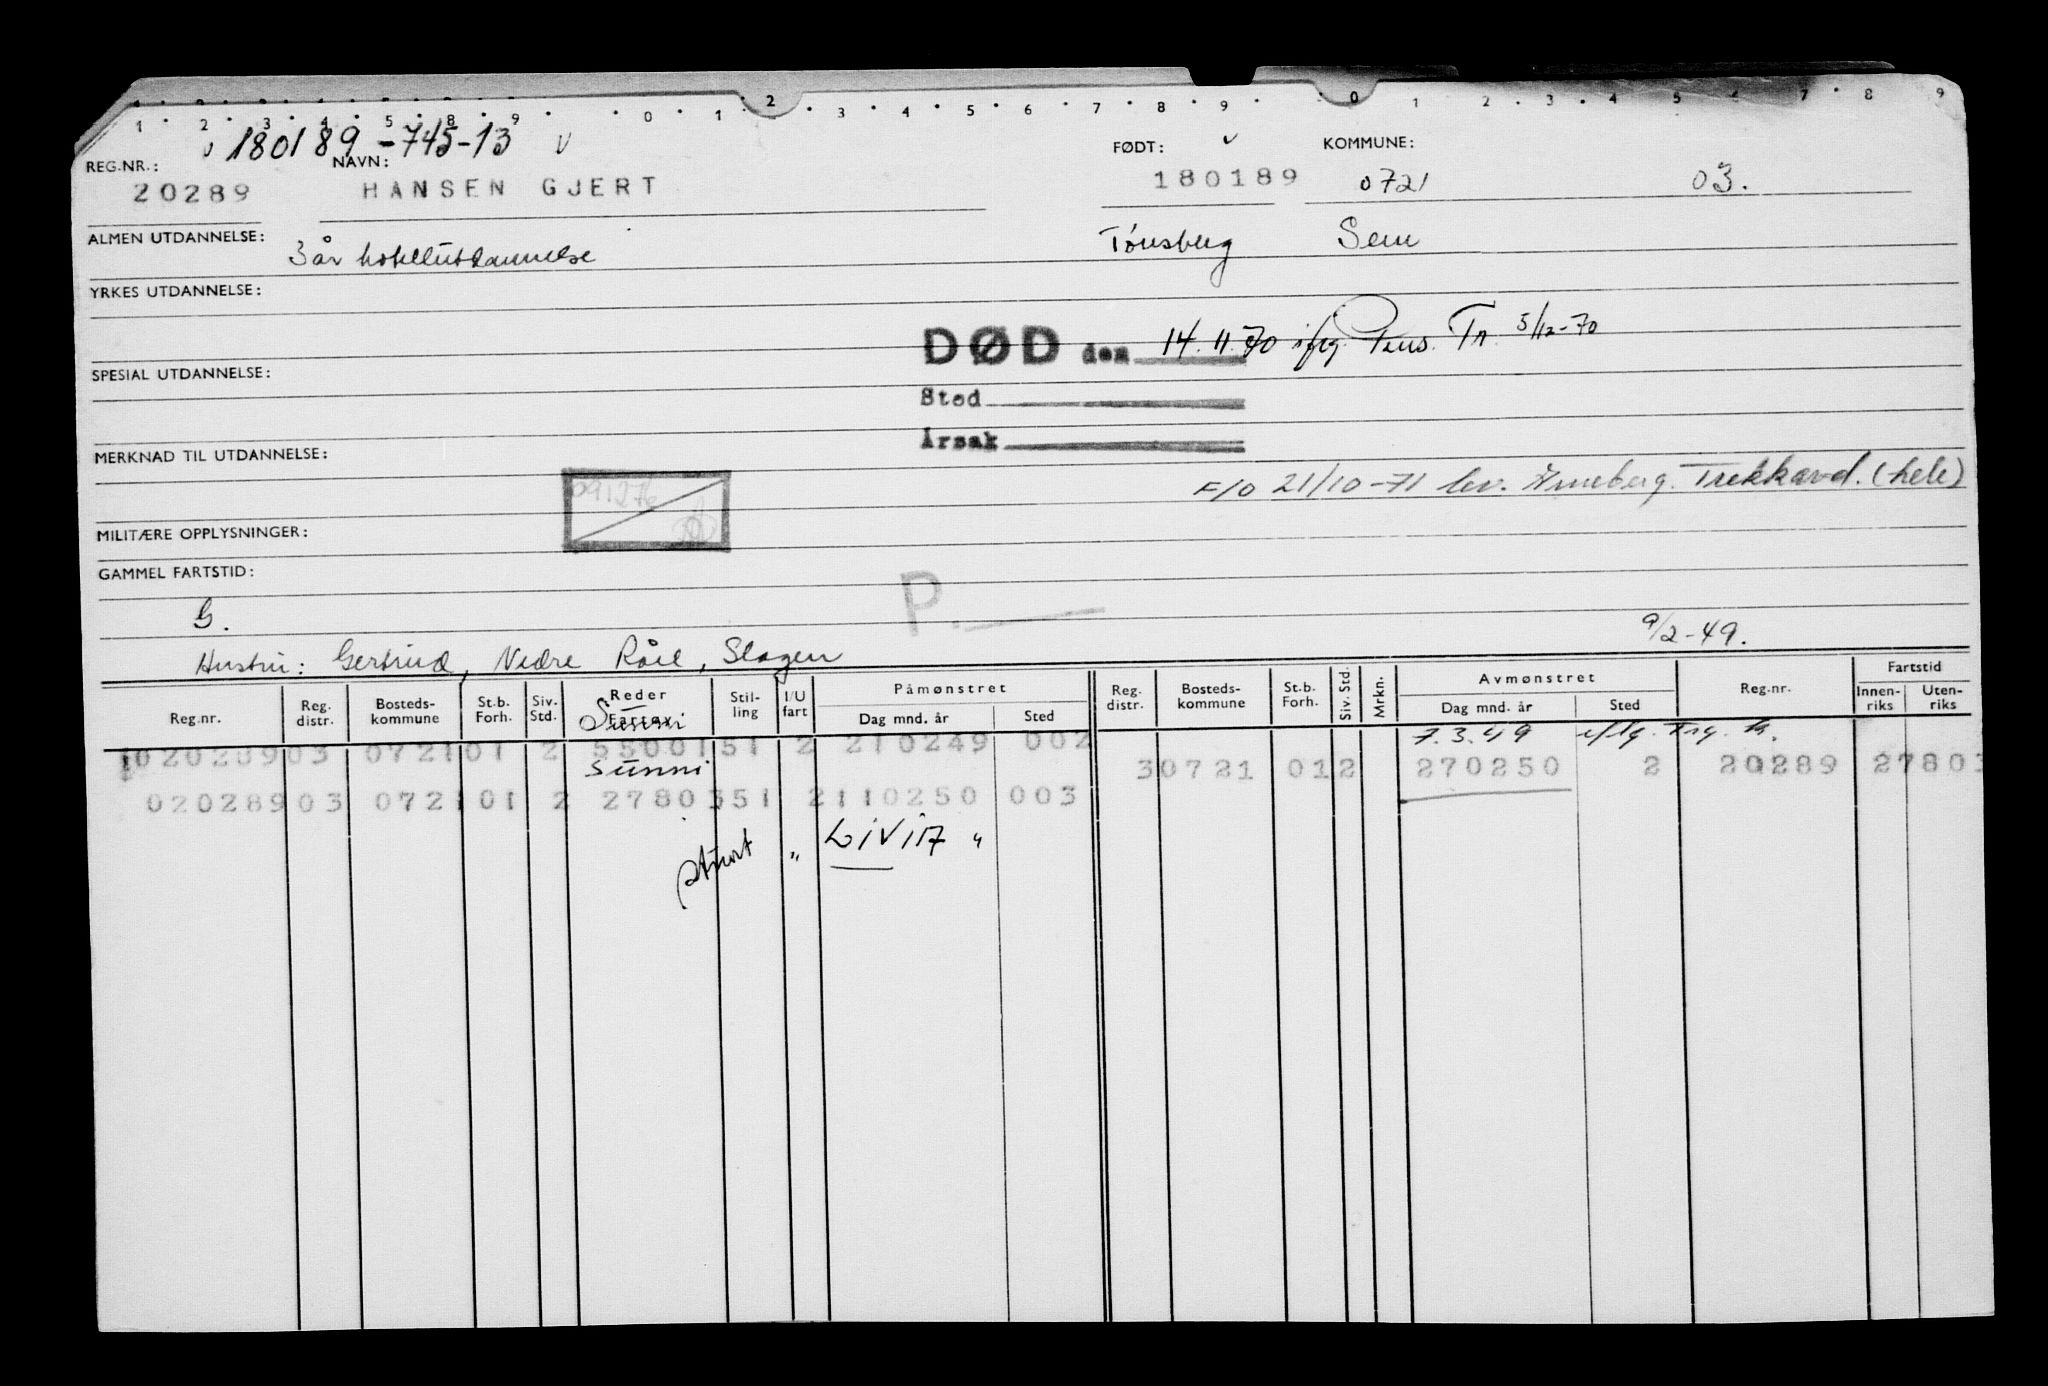 1 2 3 4 5 8 9 0 1 2 3 4 5 6 7 8 9 0 1 2 3 4 5 6 7 8 9
v 180189-745-13 v
REG.NR.: NAVN: FØDT: v KOMMUNE:
20289 HANSEN GJERT 180189 0721 03.
ALMEN UTDANNELSE: 3 år hotellutdannelse Tønsberg Sem
YRKES UTDANNELSE:
DØD den 14.11.70 iflg. Pens. Tr. 5/12-70
SPESIAL UTDANNELSE:
Sted
Årsak
MERKNAD TIL UTDANNELSE:
F/O 21/10-71 lev. Arneberg. Trekkavd. (hele)
091276
MILITÆRE OPPLYSNINGER:
GAMMEL FARTSTID:
P.
G.
9/2-49.
Hustru: Gertrud, Nedre Råel, Slagen
Reg.nr. Reg. distr. Bosteds- kommune St.b. Forh. Siv. Std. Reder Fartøy Stil- ling I/U fart Påmønstret Dag mnd. år Sted Reg. distr. Bosteds- kommune St.b. Forh. Siv. Std. Mrkn. Avmønstret Dag mnd. år Sted Reg.nr. Fartstid Innen- riks Uten- riks
Sunni
1020289 03 0721 01 2 55001 51 2 210249 002 7.3.49 iflg.
Sunni
30721 01 2 270250 2 20289 27803
020289 03 0721 01 2 27803 51 2 110250 003
Stuert " LIVIA "